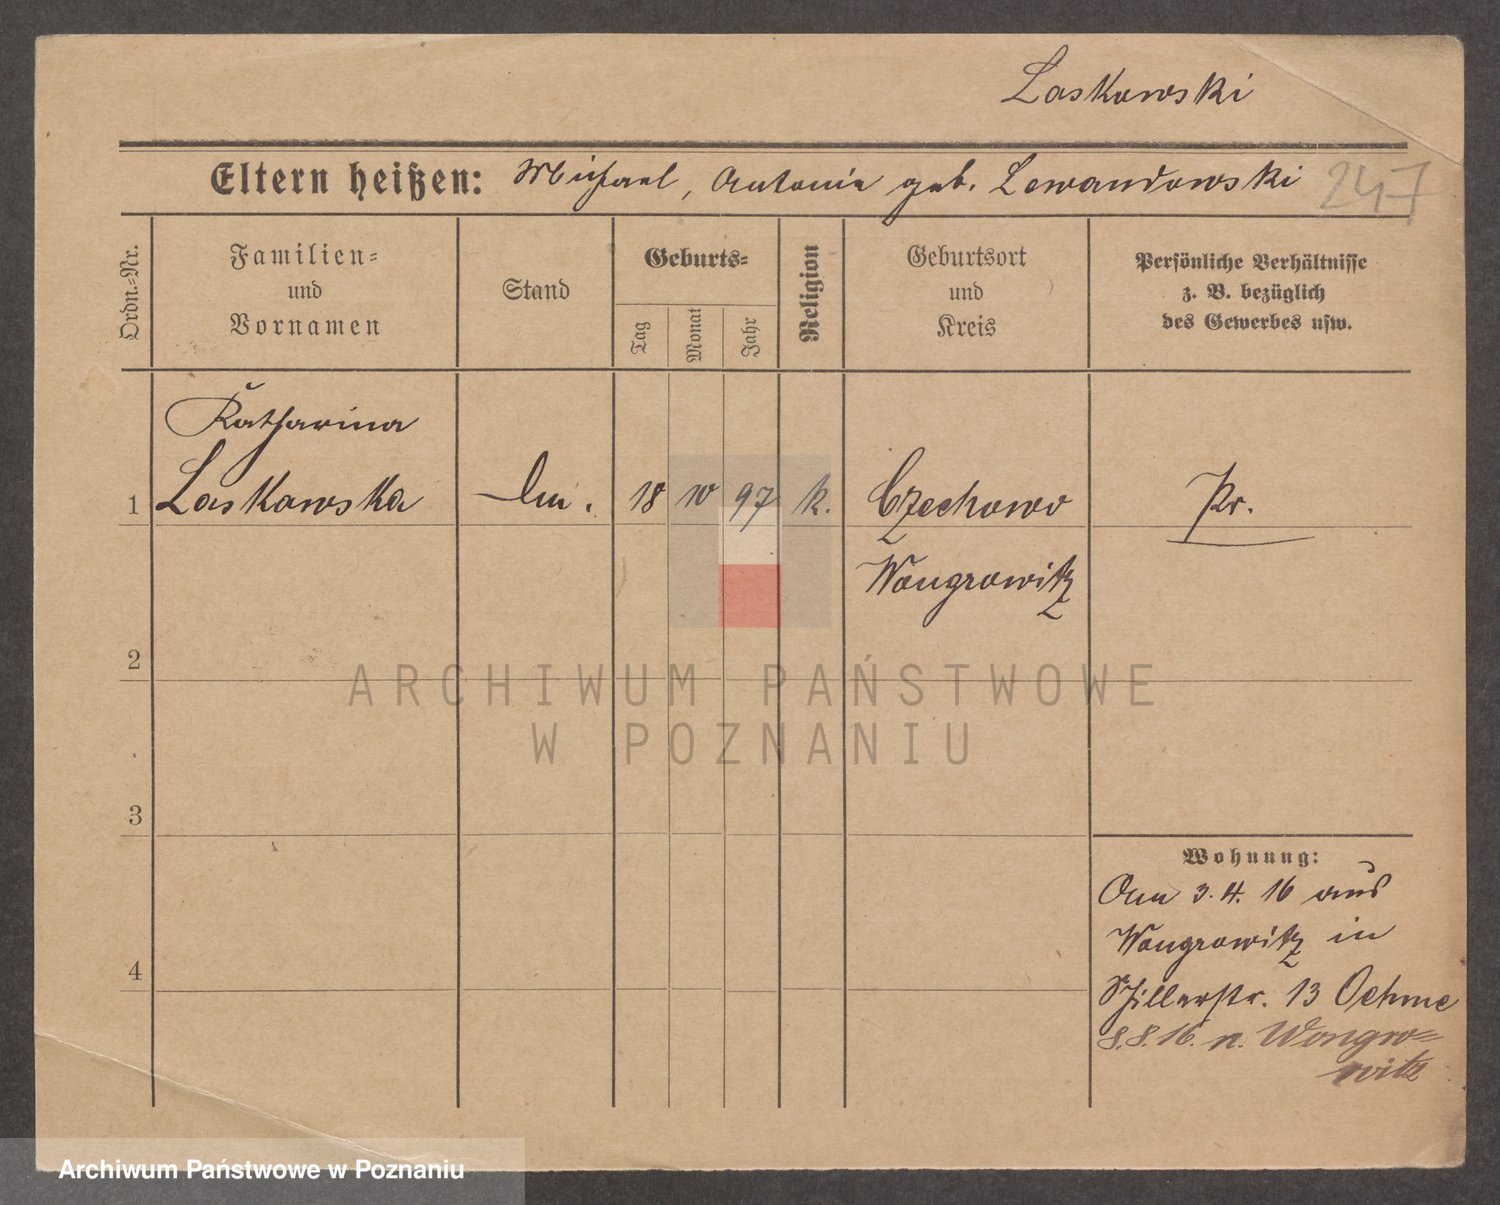 Laskowski
Eltern heißen: Michael, Antonie geb. Lewandowski 247
Ordn.-Nr.
Familien-
und
Vornamen
Stand
Geburts-
Tag
Monat
Jahr
Religion
Geburtsort
und
Kreis
Persönliche Verhältnisse
z. B. bezüglich
des Gewerbes usw.
Katharina
1 Laskowska 18 10 97 k. Czechowo Pr.
Wongrowitz
2
ARCHIWUM PAŃSTWOWE
W POZNANIU
3
Wohnung:
3.4.16 aus
Wongrowitz in
4
Schillerstr. 13 Oehme
8.8.16. n. Wongro-
witz
Archiwum Państwowe w Poznaniu